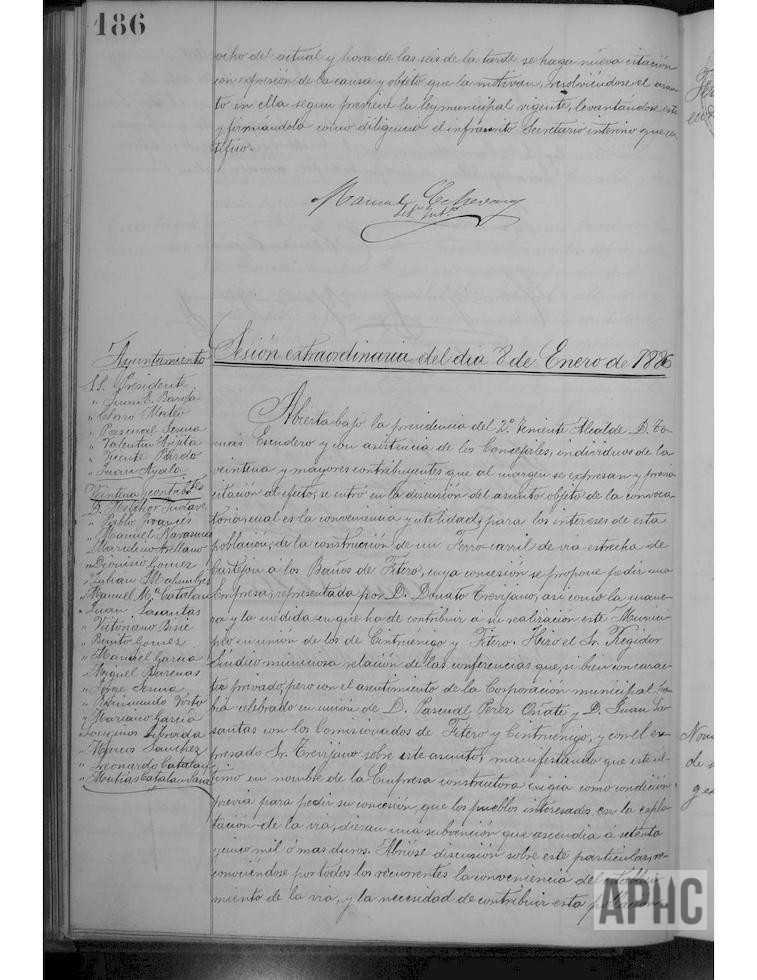 186
ocho del actual y hora de las seis de la tarde se haga nueva citación
con expresión de la causa y objeto que la motivan, resolviéndose el asun-
to en ella segun previene la ley municipal vigente, levantandose esta
y firmándola como diligencia el infrascrito Secretario interino que cer-
tifico.
Manuel Echevarry
Srio Intº
Sesión extraordinaria del dia 8 de Enero de 1886
Ayuntamiento
S.S. Presidente
" Juan E. Baroja
" Claro Mateo
" Pascual Sesma
" Valentin
" Vicente Pardo
" Juan Ayala
Veintena y contribtes
D. Melchor
" Pablo Frances
" Manuel Navascues
Marcelino Arellano
" Dionisio Gomez
" Julian Malumbres
" Manuel Mª Catalan
" Juan Lasantas
" Vitoriano
" Benito Gomez
" Manuel Garcia
" Miguel Barenas
" Jorge Sesma
" Raimundo Virto
" Mariano Garcia
" Marcos Sanchez
" Leonardo Catalan
" Matias Catalan Sanz
Abierta bajo la presidencia del 2º Teniente Alcalde D. To-
más Escudero y con asistencia de los Concejales, individuos de la
veintena y mayores contribuyentes que al margen se expresan y previa
citación al efecto, se entró en la discusión del asunto objeto de la convoca-
toria, cual es la conveniencia y utilidad, para los intereses de esta
población, de la construcción de un Ferro-carril de via estrecha de
Castejon a los Baños de Fitero, cuya concesión se propone pedir una
Empresa, representada por D. Donato Trevijano, asi como la mane-
ra y la medida en que ha de contribuir a su realización este Munici-
pio en unión de los de Cintruénigo y Fitero. Hizo el Sr. Regidor
Sindico minuciosa relación de las conferencias que, si bien con carac-
ter privado, pero con el asentimiento de la Corporación municipal ha-
bia celebrado en unión de D. Pascual Perez Oñate y D. Juan La-
santas con los Comisionados de Fitero y Cintruénigo, y con el ex-
presado Sr. Trevijano sobre este asunto, manifestando que este ul-
timo en nombre de la Empresa constructora exigia como condición
previa para pedir su concesión, que los pueblos interesados en la explo-
tación de la via, dieran una subvención que ascendia á setenta
y cinco mil ó mas duros. Abrióse discusión sobre este particular, re-
conociéndose por todos los concurrentes la conveniencia del estableci-
miento de la via, y la necesidad de contribuir esta población
APHC